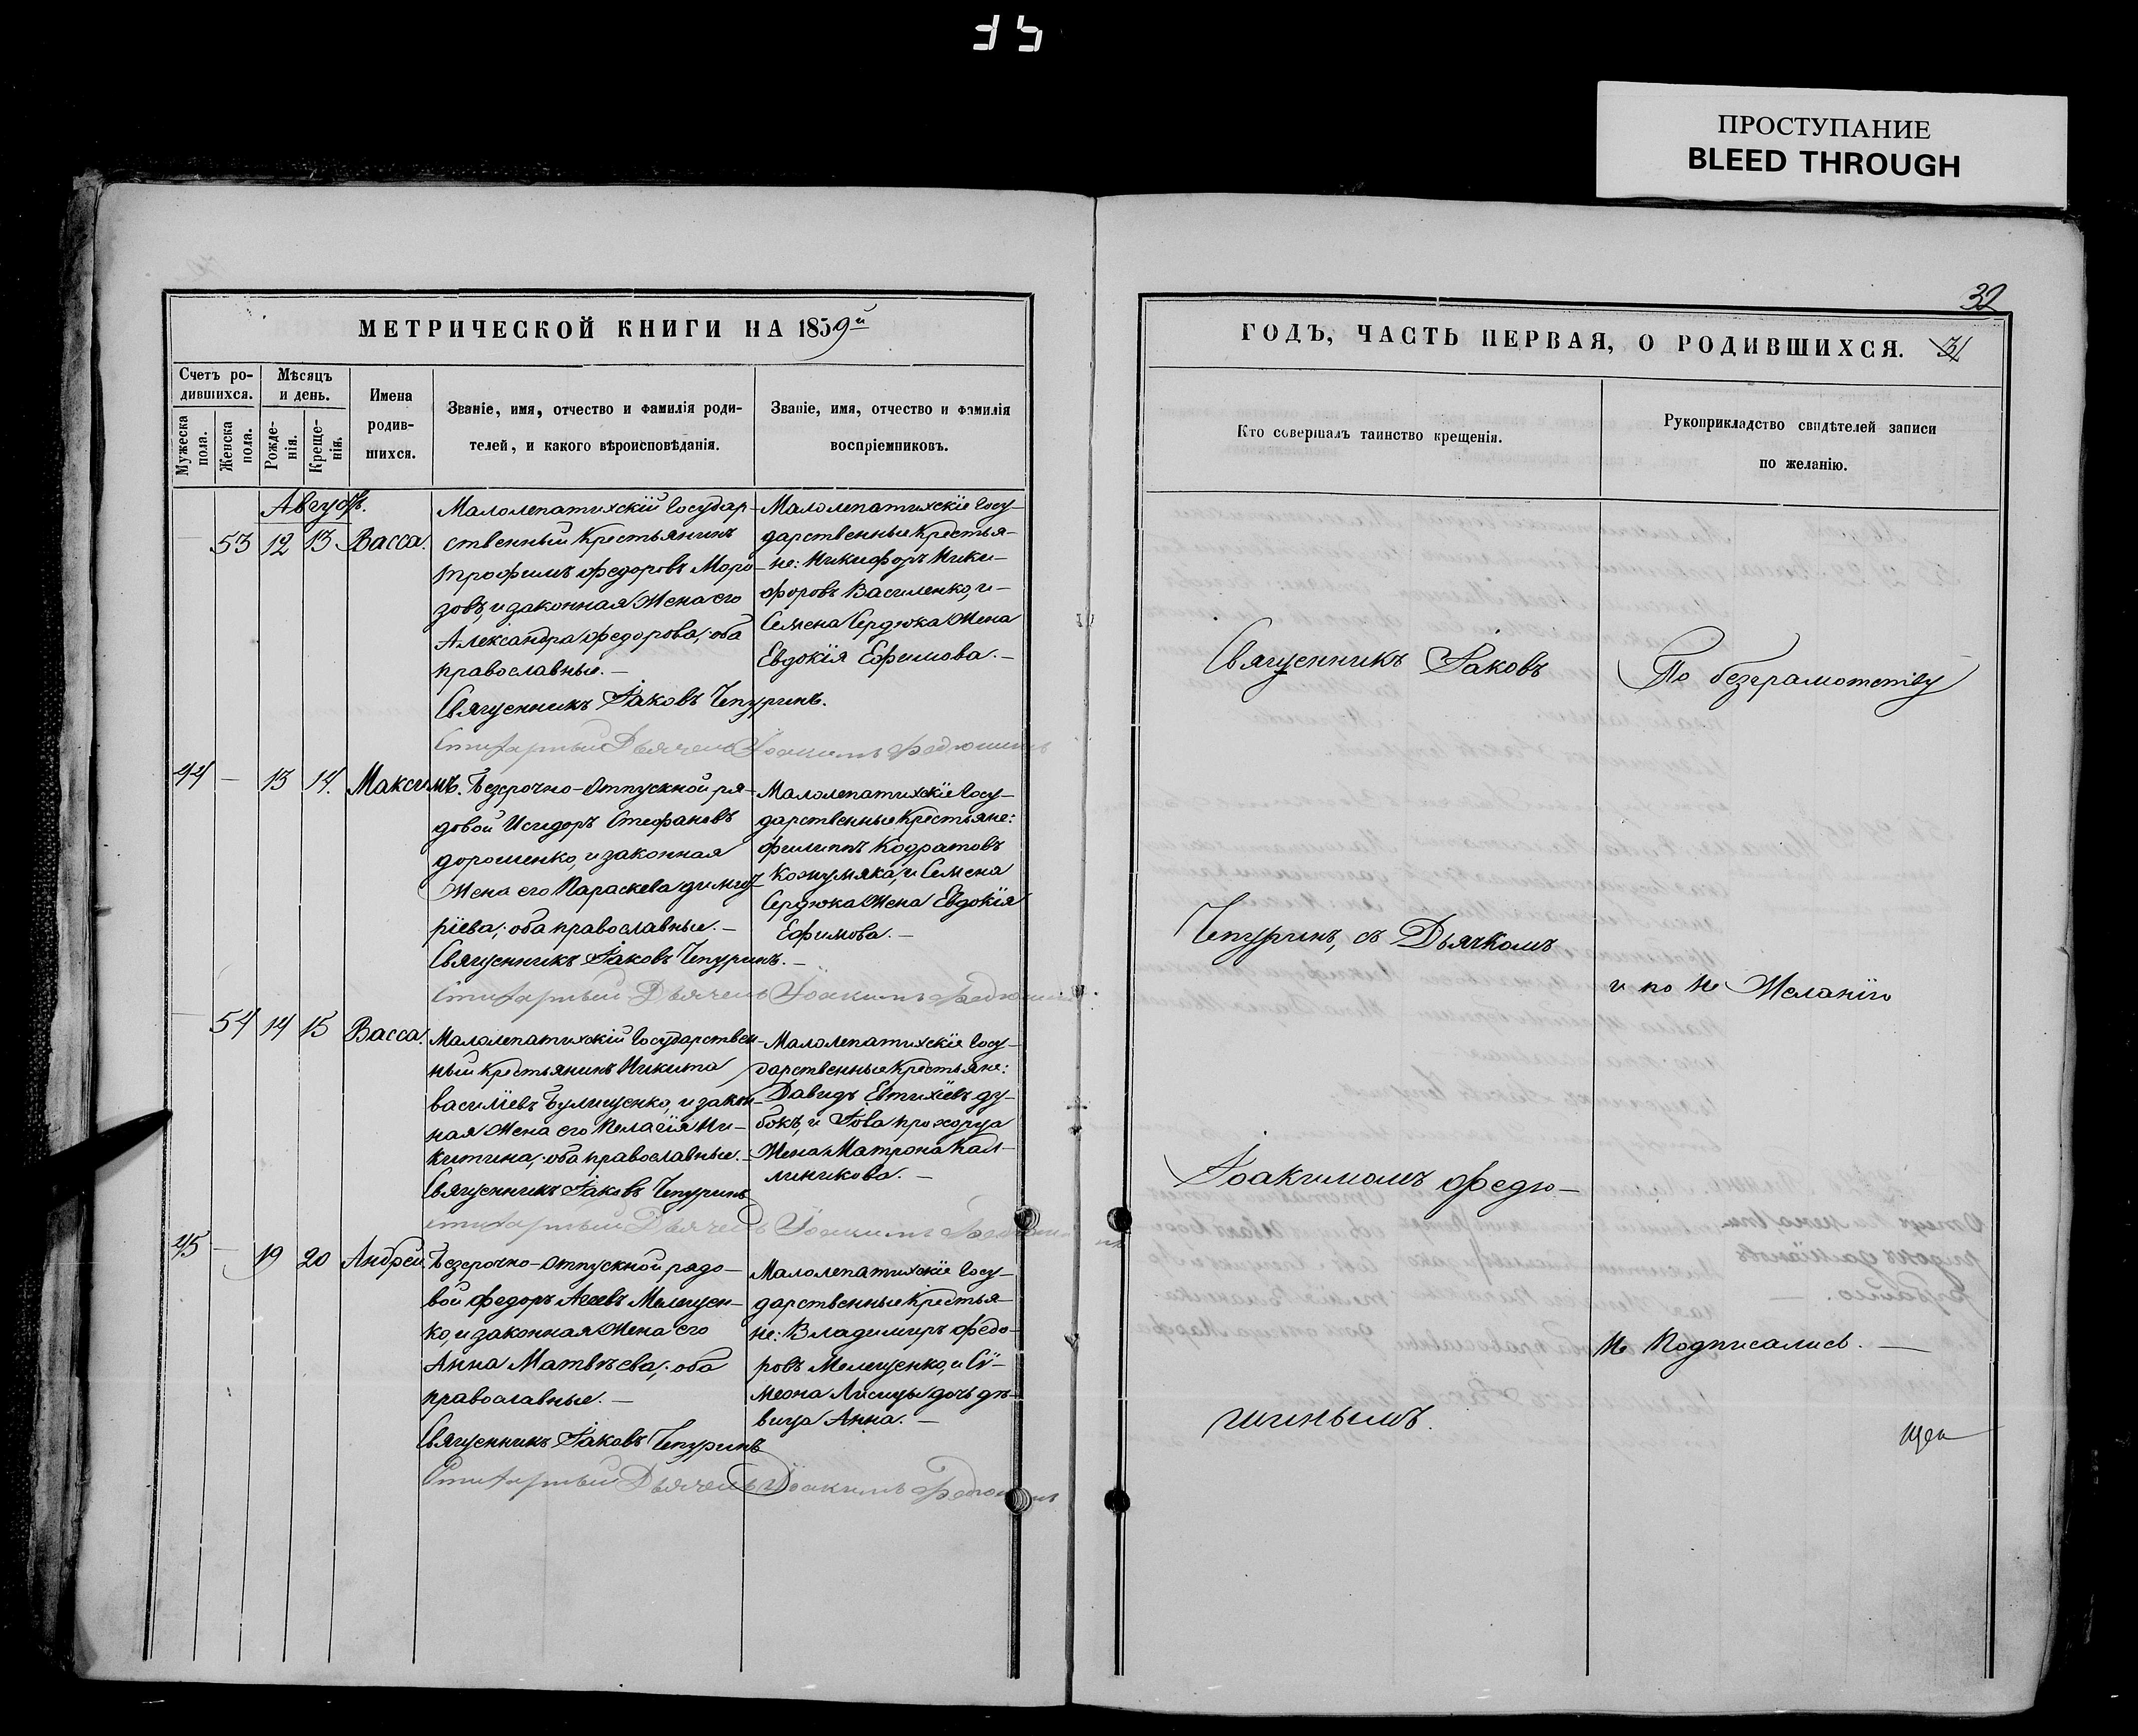 ПРОСТУПАНИЕ
BLEED THROUGH
МЕТРИЧЕСКОЙ КНИГИ НА 1859й
Счетъ ро-
дившихся.
Мужеска
пола.
Женска
пола.
Мѣсяцъ
и день.
Рожде-
нія.
Креще-
нія.
Имена
родив-
шихся.
Званіе, имя, отчество и фамилія роди-
телей, и какого вѣроисповѣданія.
Званіе, имя, отчество и фамилія
воспріемниковъ.
Августъ.
— 53 12 13 Васса.
Малолепатихскій Государ-
ственный Крестьянинъ
Трофимъ Федоровъ Моро-
зовъ, и законная Жена его
Александра Федорова; оба
православные. —
Священникъ Іаковъ Чепуринъ.
Дьячекъ Іоакимъ Федюшинъ
Малолепатихскіе Госу-
дарственные Крестья-
не: Никифоръ Ники-
форовъ Василенко, и —
Семена Сердюка Жена
Евдокія Ефимова. —
44 — 13 14. Максимъ.
Безсрочно-Отпускной ря-
довой Исидоръ Стефановъ
Дорошенко, и законная
Жена его Параскева Димит-
ріева; оба православные. —
Священникъ Іаковъ Чепуринъ. —
Дьячекъ Іоакимъ Федюшинъ
Малолепатихскіе Госу-
дарственные Крестьяне:
Филиппъ Кодратовъ
Кожумяка, и Семена
Сердюка Жена Евдокія
Ефимова. —
— 54 14 15 Васса.
Малолепатихскій Государствен-
ный Крестьянинъ Никита
Васильевъ Булищенко, и закон-
ная Жена его Пелагія Ни-
китина; оба православные. —
Священникъ Іаковъ Чепуринъ
Дьячекъ Іоакимъ
Малолепатихскіе Госу-
дарственные Крестьяне:
Давидъ Евтихіевъ Ду-
бокъ, и Іова Прохорца
Жена Матрона Кал-
линикова. —
45 — 19 20 Андрей.
Безсрочно-Отпускной рядо-
вой Федоръ Агеевъ Мелещен-
ко, и законная Жена его
Анна Матвѣева; оба
православные. —
Священникъ Іаковъ Чепуринъ
Дьячекъ Іоакимъ Федюшинъ
Малолепатихскіе Госу-
дарственные Крестья-
не: Владимиръ Федо-
ровъ Мелещенко, и Сѵ-
меона Лисицы дочь дѣ-
вица Анна. —
32
ГОДЪ, ЧАСТЬ ПЕРВАЯ, О РОДИВШИХСЯ. 31
Кто совершалъ таинство крещенія.
Рукоприкладство свидѣтелей записи
по желанію.
Священникъ Іаковъ
Чепуринъ, съ Дьячкомъ
Іоакимомъ Федю-
шинымъ.
По безграмотству
и по не Желанію
Не Подписались. —